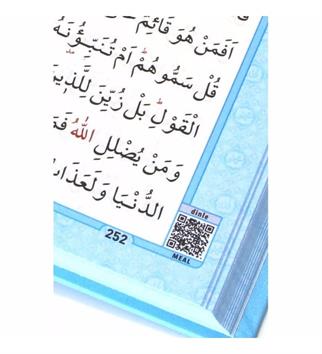 اَفَمَنْ هُوَ قَٓائِمٌ
قُلْ سَمُّوهُمْ اَمْ تُنَبِّؤُ۫نَهُ
الْقَوْلِۜ بَلْ زُيِّنَ لِلَّذ۪ينَ
وَمَنْ يُضْلِلِ اللّٰهُ فَمَ
الدُّنْيَا وَلَعَذَا
dinle
252
MEAL